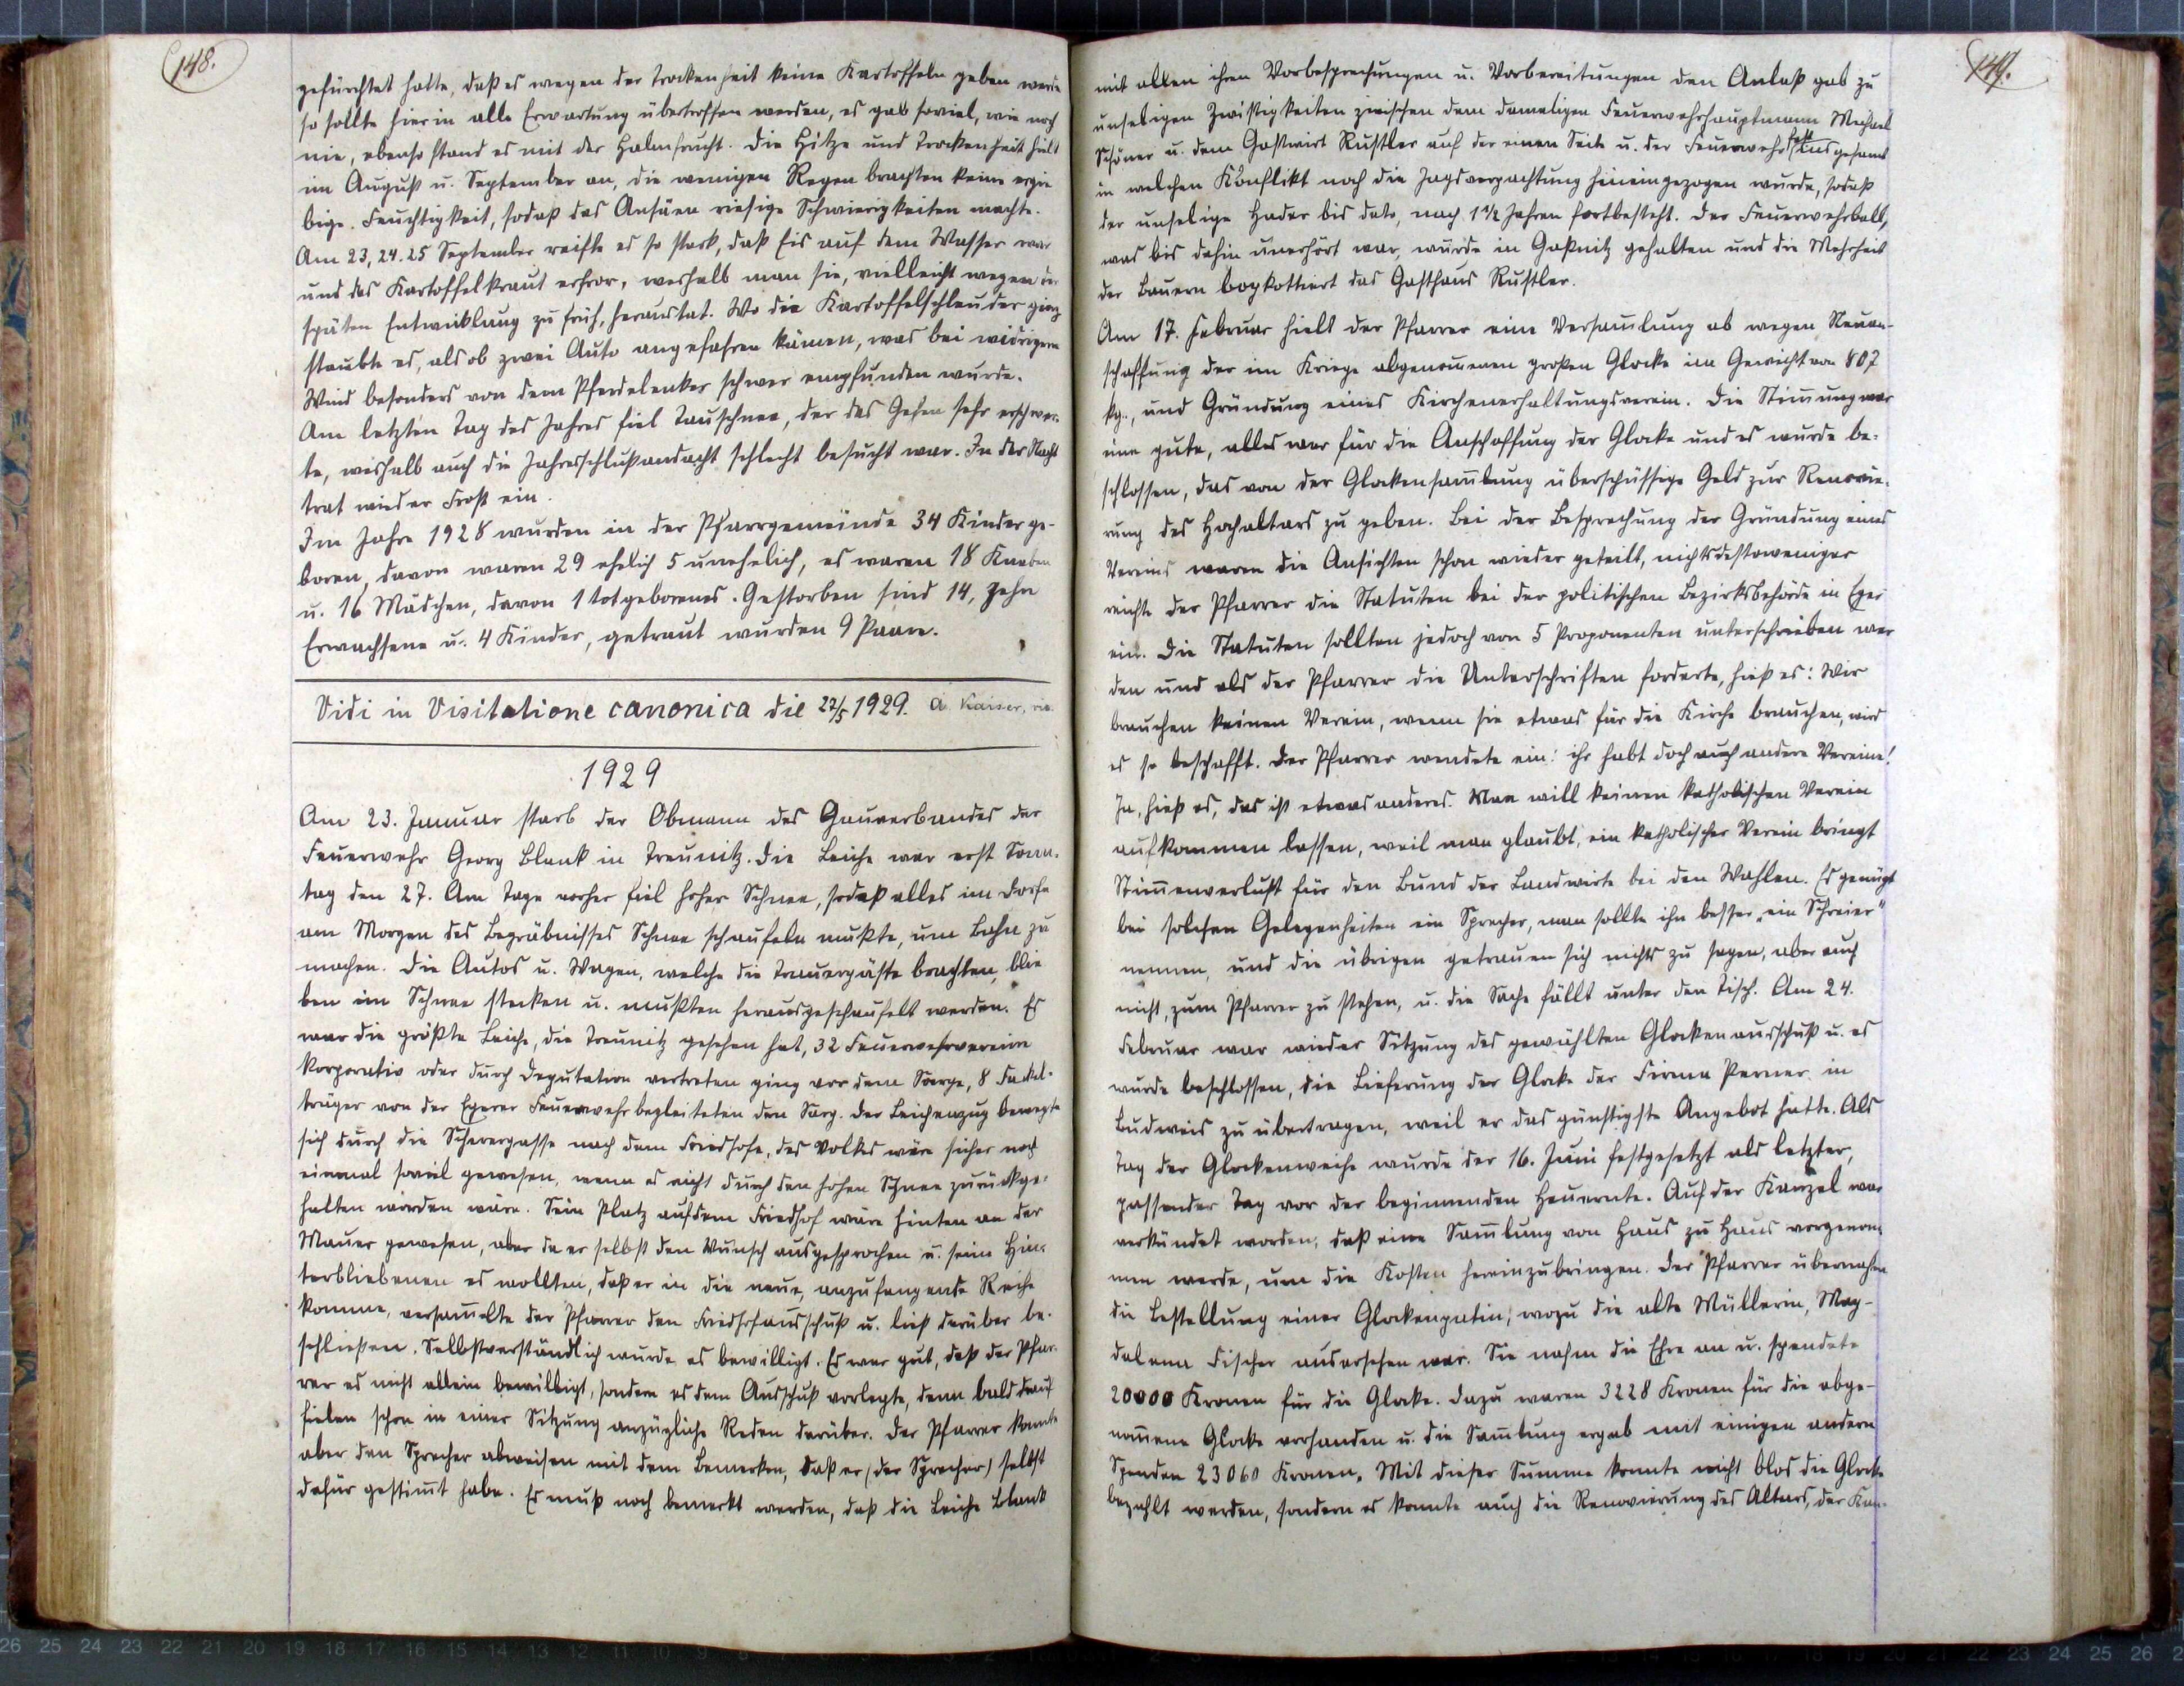 148.
gefürchtet hatte, daß es wegen der Trockenheit keine Kartoffeln geben werde
so sollte hierin alle Erwartung übertroffen werden, es gab soviel, wie noch
nie, ebenso stand es mit der Halmfrucht. Die Hitze und Trockenheit hielt
im August u. September an, die wenigen Regen brachten keine ergie
bige Feuchtigkeit, sodaß das Ansäen riesige Schwierigkeiten machte.
Am 23, 24. 25 September reifte es so stark, daß Eis auf dem Wasser war
und das Kartoffelkraut erfror, weshalb man sie, vielleicht wegen der
späten Entwicklung zu früh, heraustat. Wo die Kartoffelschleuder ging
staubte es, als ob zwei Auto angefahren kämen, was bei widrigem
Wind besonders von dem Pferdelenker schwer empfunden wurde.
Am letzten Tag des Jahres fiel Tauschnee, der das Gehen sehr erschwer-
te, weshalb auch die Jahresschlußandacht schlecht besucht war. In der Nacht
trat wieder Frost ein.
Im Jahre 1928 wurden in der Pfarrgemeinde 34 Kinder ge-
boren, davon waren 29 ehelich 5 unehelich, es waren 18 Knaben
u. 16 Mädchen, davon 1 totgeborenes. Gestorben sind 14, zehn
Erwachsene u. 4 Kinder, getraut wurden 9 Paare.
Vidi in Visitatione canonica die 22/5 1929. A. Kaiser,
1929
Am 23. Januar starb der Obmann des Gauverbandes der
Feuerwehr Georg Blank in Treunitz. Die Leiche war erst Sonn-
tag den 27. Am Tage vorher fiel hoher Schnee, sodaß alles im Dorfe
am Morgen des Begräbnisses Schnee schaufeln mußte, um Bahn zu
machen. Die Autos u. Wagen, welche die Trauergäste brachten, blie
ben im Schnee stecken u. mußten herausgeschaufelt werden. Es
war die größte Leiche, die Treunitz gesehen hat, 32 Feuerwehrvereine
korporativ oder durch Deputation vertreten ging vor dem Sarge, 8 Fackel-
träger von der Egerer Feuerwehr begleiteten den Sarg. Der Leichenzug bewegte
sich durch die Scherergasse nach dem Friedhofe, des Volkes wäre sicher noch
einmal soviel gewesen, wenn es nicht durch den hohen Schnee zurückge-
halten worden wäre. Sein Platz auf dem Friedhof wäre hinten an der
Mauer gewesen, aber da er selbst den Wunsch ausgesprochen u. seine Hin-
terbliebenen es wollten, daß er in die neue, anzufangende Reihe
komme, versam̅elte der Pfarrer den Friedhofausschuß u. ließ darüber be-
schließen. Selbstverständlich wurde es bewilligt. Es war gut, daß der Pfar-
rer es nicht allein bewilligt, sondern es dem Ausschuß vorlegte, denn bald drauf
fielen schon in einer Sitzung anzügliche Reden darüber. Der Pfarrer konnte
aber den Sprecher abweisen mit dem Bemerken, daß er (der Sprecher) selbst
dafür gestim̅t habe. Es muß noch bemerkt werden, daß die Leiche Blank
149.
mit allen ihren Vorbesprechungen u. Vorbereitungen den Anlaß gab zu
unseligen Zwistigkeiten zwischen dem damaligen Feuerwehrhauptmann Michael
Schöner u. dem Gastwirt Rustler auf der einen Seite u. der Feuerwehr fast insgesamt
in welchen Konflikt noch die Jagdverpachtung hineingezogen wurde, sodaß
der unselige Hader bis dato, nach 1 1/2 Jahren fortbesteht. Der Feuerwehrball,
was bis dahin unerhört war, wurde in Gaßnitz gehalten und die Mehrheit
der Bauern boykottiert das Gasthaus Rustler.
Am 17. Februar hielt der Pfarrer eine Versam̅lung ab wegen Neuan-
schaffung der im Kriege abgenom̅enen großen Glocke im Gewicht von 807
kg., und Gründung eines Kirchenerhaltungsverein. Die Stim̅ung war
eine gute, alles war für die Anschaffung der Glocke und es wurde be-
schlossen, das von der Glockensam̅lung überschüssige Geld zur Renovie-
rung des Hochaltars zu geben. Bei der Besprechung der Gründung eines
Vereins waren die Ansichten schon wieder geteilt, nichtsdestoweniger
reichte der Pfarrer die Statuten bei der politischen Bezirksbehörde in Eger
ein. Die Statuten sollten jedoch von 5 Proponenten unterschrieben wer
den und als der Pfarrer die Unterschriften forderte, hieß es: Wir
brauchen keinen Verein, wenn sie etwas für die Kirche brauchen, wird
es so beschafft. Der Pfarrer wendete ein: ihr habt doch auch andere Vereine!
Ja, hieß es, das ist etwas anderes. Man will keinen katholischen Verein
aufkommen lassen, weil man glaubt, ein katholischer Verein bringt
Stim̅enverlust für den Bund der Landwirte bei den Wahlen. Es genügt
bei solchen Gelegenheiten ein Sprecher, man sollte ihn besser „ein Schreier"
nennen, und die übrigen getrauen sich nichts zu sagen, aber auch
nicht, zum Pfarrer zu stehen, u. die Sache fällt unter den Tisch. Am 24.
Februar war wieder Sitzung des gewählten Glockenausschuß u. es
wurde beschlossen, die Lieferung der Glocke der Firma Perner in
Budweis zu übertragen, weil er das günstigste Angebot hatte. Als
Tag der Glockenweihe wurde der 16. Juni festgesetzt als letzter,
passender Tag vor der beginnenden Heuernte. Auf der Kanzel war
verkündet worden, daß eine Sam̅lung von Haus zu Haus vorgenom-
men werde, um die Kosten hereinzubringen. Der Pfarrer übernahm
die Bestellung einer Glockenpatin, wozu die alte Müllerin, Mag-
dalena Fischer ausersehen war. Sie nahm die Ehre an u. spendete
20000 Kronen für die Glocke. Dazu waren 3228 Kronen für die abge-
nom̅ene Glocke vorhanden u. die Sam̅lung ergab mit einigen andern
Spenden 23060 Kronen. Mit dieser Summe konnte nicht blos die Glocke
bezahlt werden, sondern es konnte auch die Renovierung des Altars, der Kan-